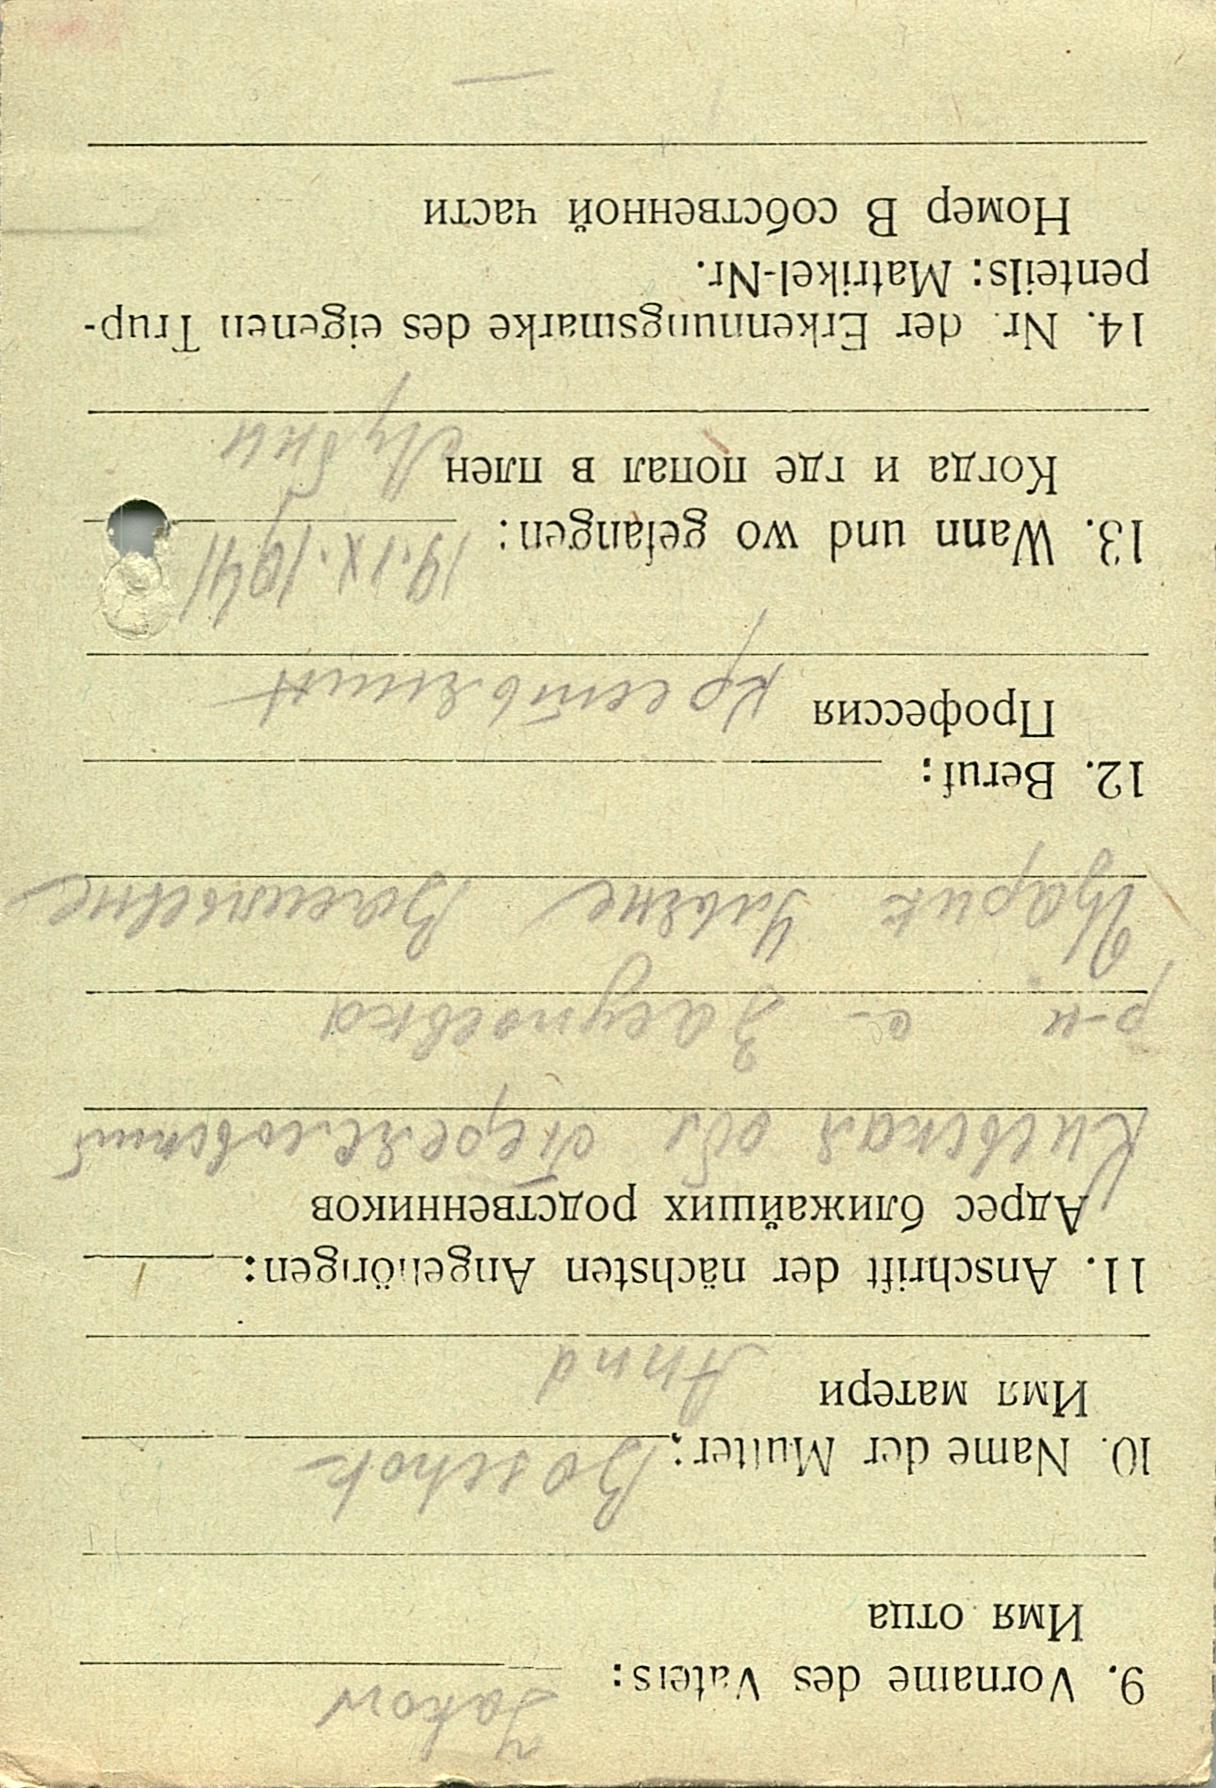 9. Vorname des Vaters: Jakow
Имя отца
10. Name der Mutter: Boschok
Имя матери Anna
11. Anschrift der nächsten Angehörigen:
Адрес ближайших родственников
Киевская обл Переяславский
р-н с-
Ульяне Васильевне
12. Beruf:
Профессия крестьянин
13. Wann und wo gefangen: 19.IX.1941
Когда и где попал в плен Лубны
14. Nr. der Erkennungsmarke des eigenen Trup-
penteils: Matrikel-Nr.
Номер В собственной части
—